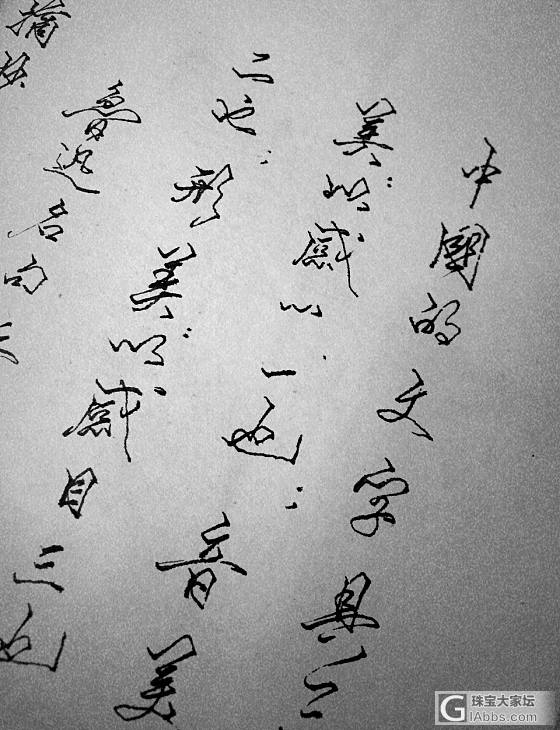 中國的文字具三
美:以感心,一也;音美
二也;形美:以感目三也
魯迅名句
摘
珠宝大家坛
GIAbbs.com